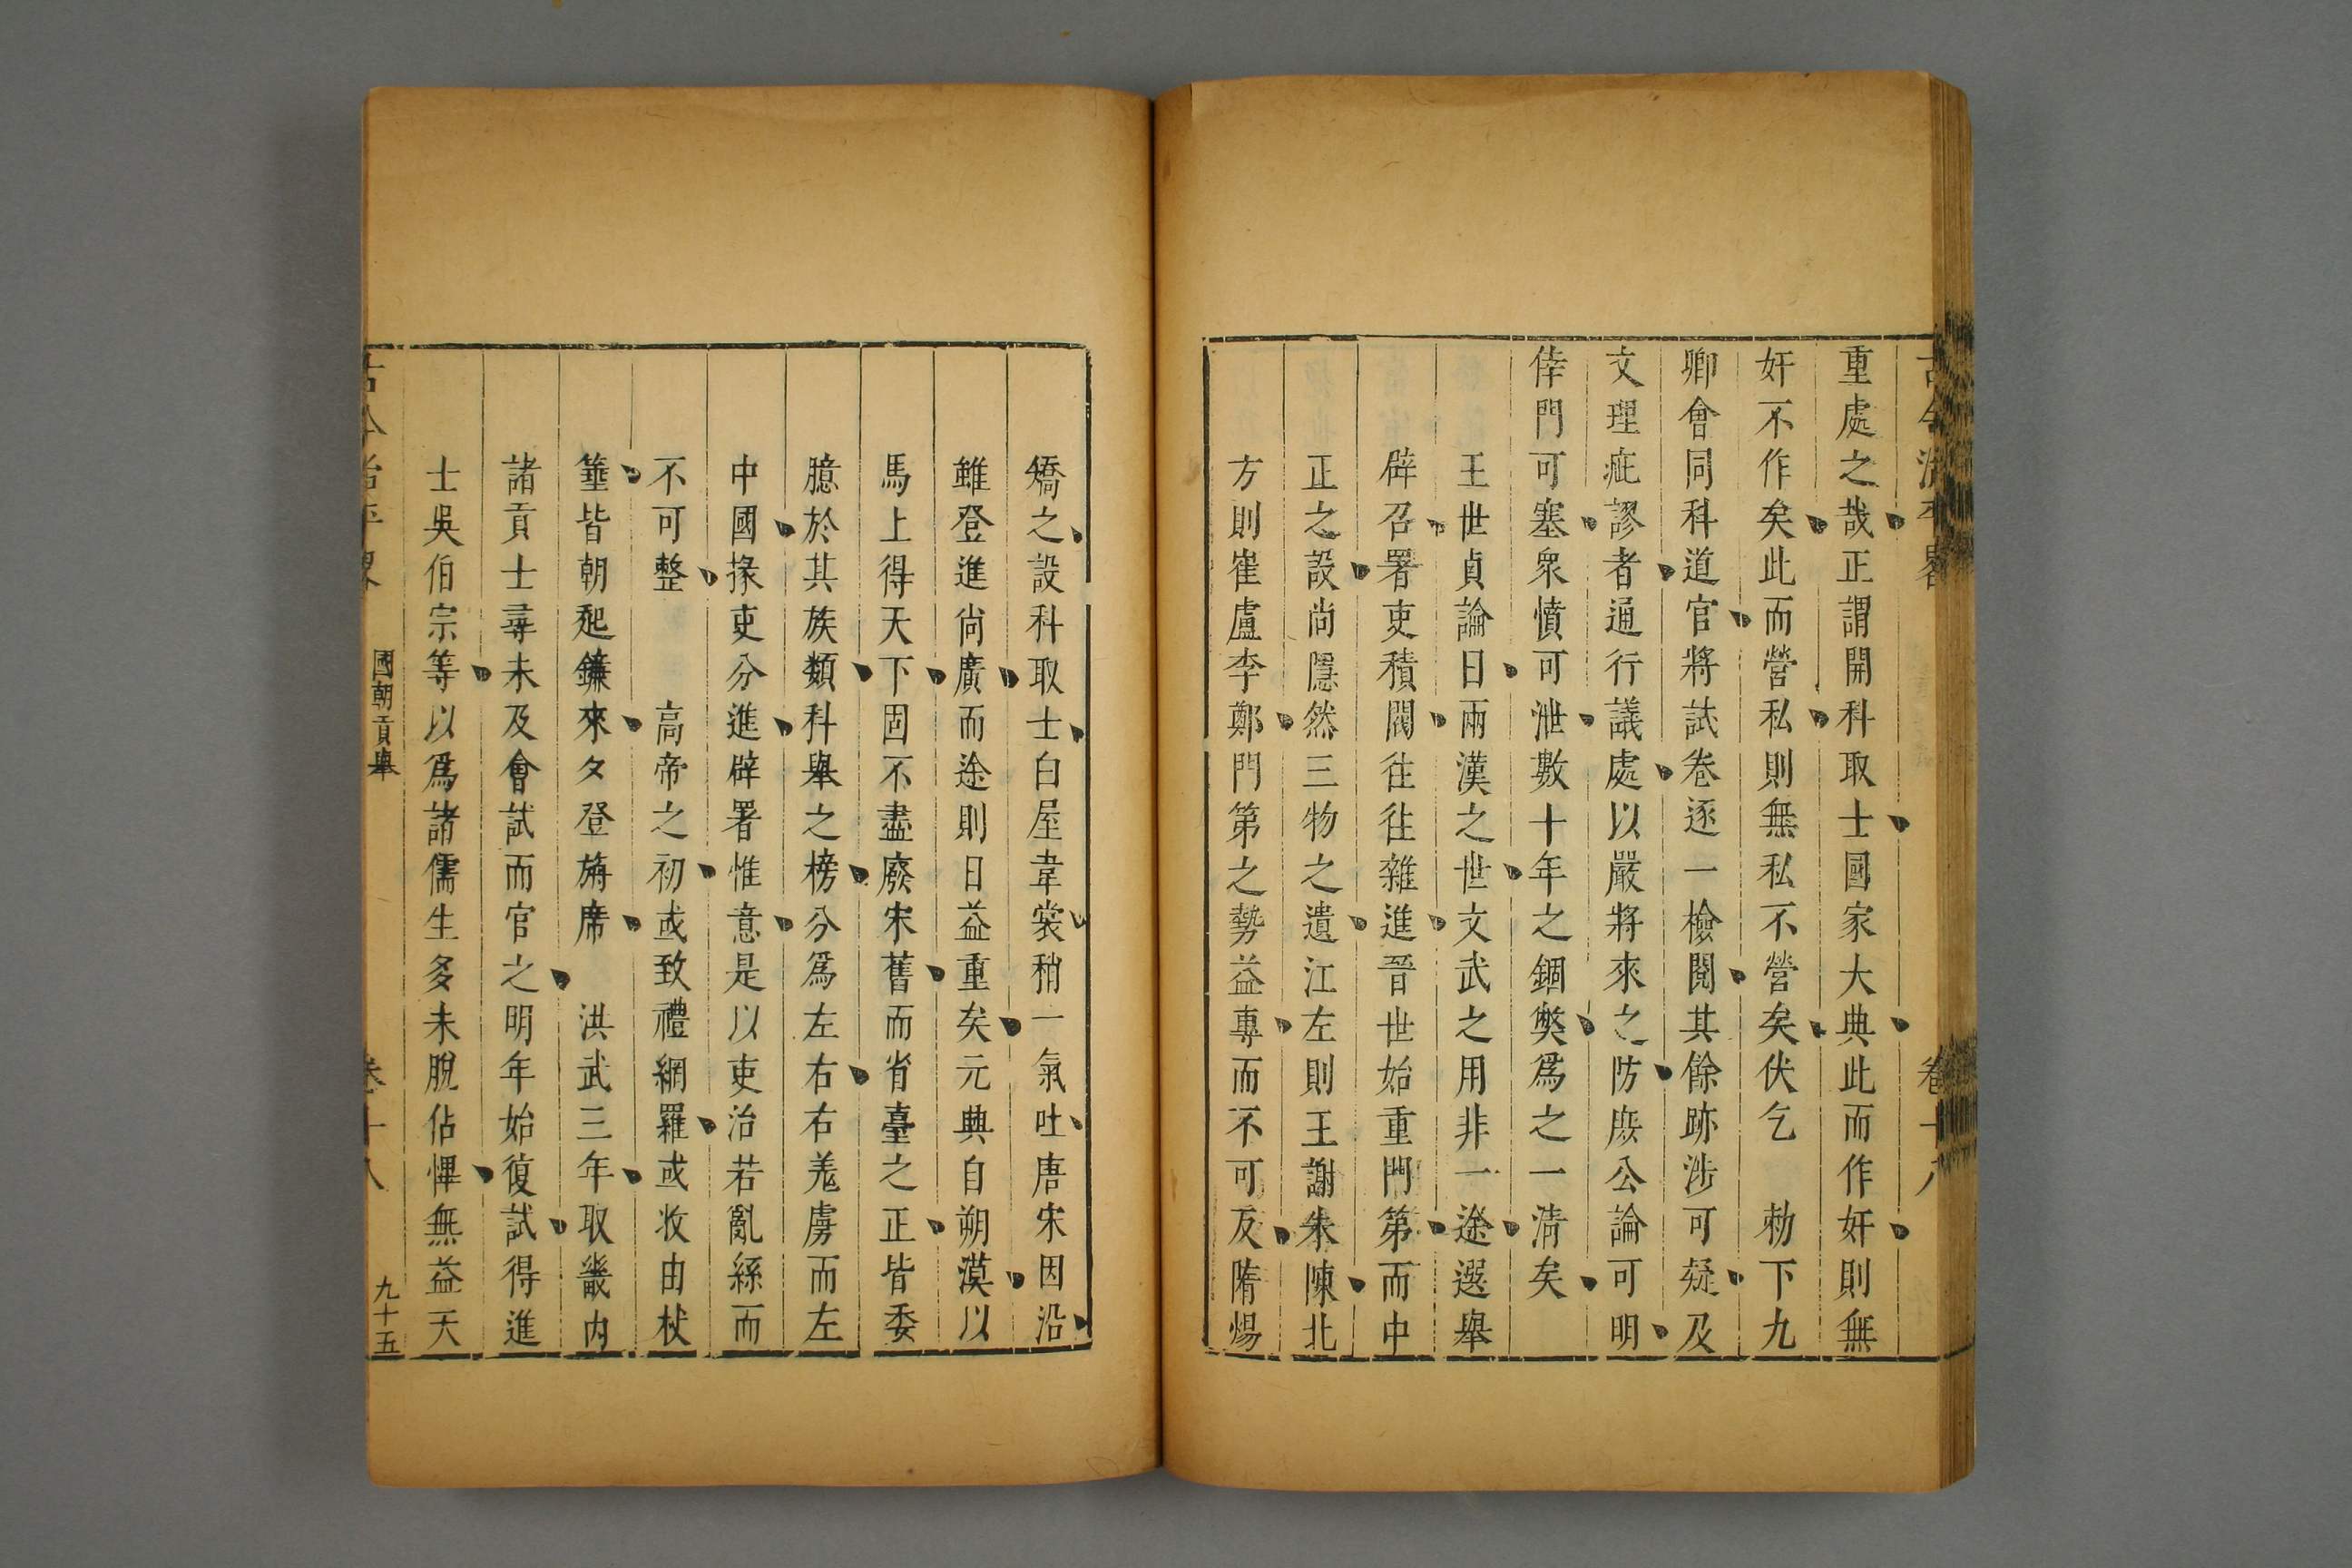 古今治平畧
卷十八
重處之哉正謂開科取士國家大典此而作奸則無
奸不作矣此而營私則無私不營矣伏乞　勅下九
卿會同科道官將試卷逐一檢閱其餘跡涉可疑及
文理疵謬者通行議處以嚴將來之防庻公論可明
倖門可塞衆憤可泄數十年之錮獘爲之一清矣
王世貞論曰兩漢之世文武之用非一途選舉
辟召署吏積閥徃徃雜進晉世始重門第而中
正之設尚隱然三物之遺江左則王謝朱陳北
方則崔盧李鄭門第之勢益專而不可反隋煬
矯之設科取士白屋韋裳稍一氣吐唐宋因沿
雖登進尚廣而途則日益重矣元典自朔漠以
馬上得天下固不盡廢宋舊而省臺之正皆委
臆於其族類科舉之榜分爲左右右羗虜而左
中國掾吏分進辟署惟意是以吏治若亂絲而
不可整　　高帝之初或致禮網羅或收由杖
箠皆朝起鑣來夕登旃席　洪武三年取畿內
諸貢士尋未及會試而官之明年始復試得進
士吳伯宗等以爲諸儒生多未脫佔𠌫無益天
古今治平畧
國朝貢舉
卷十八
九十五